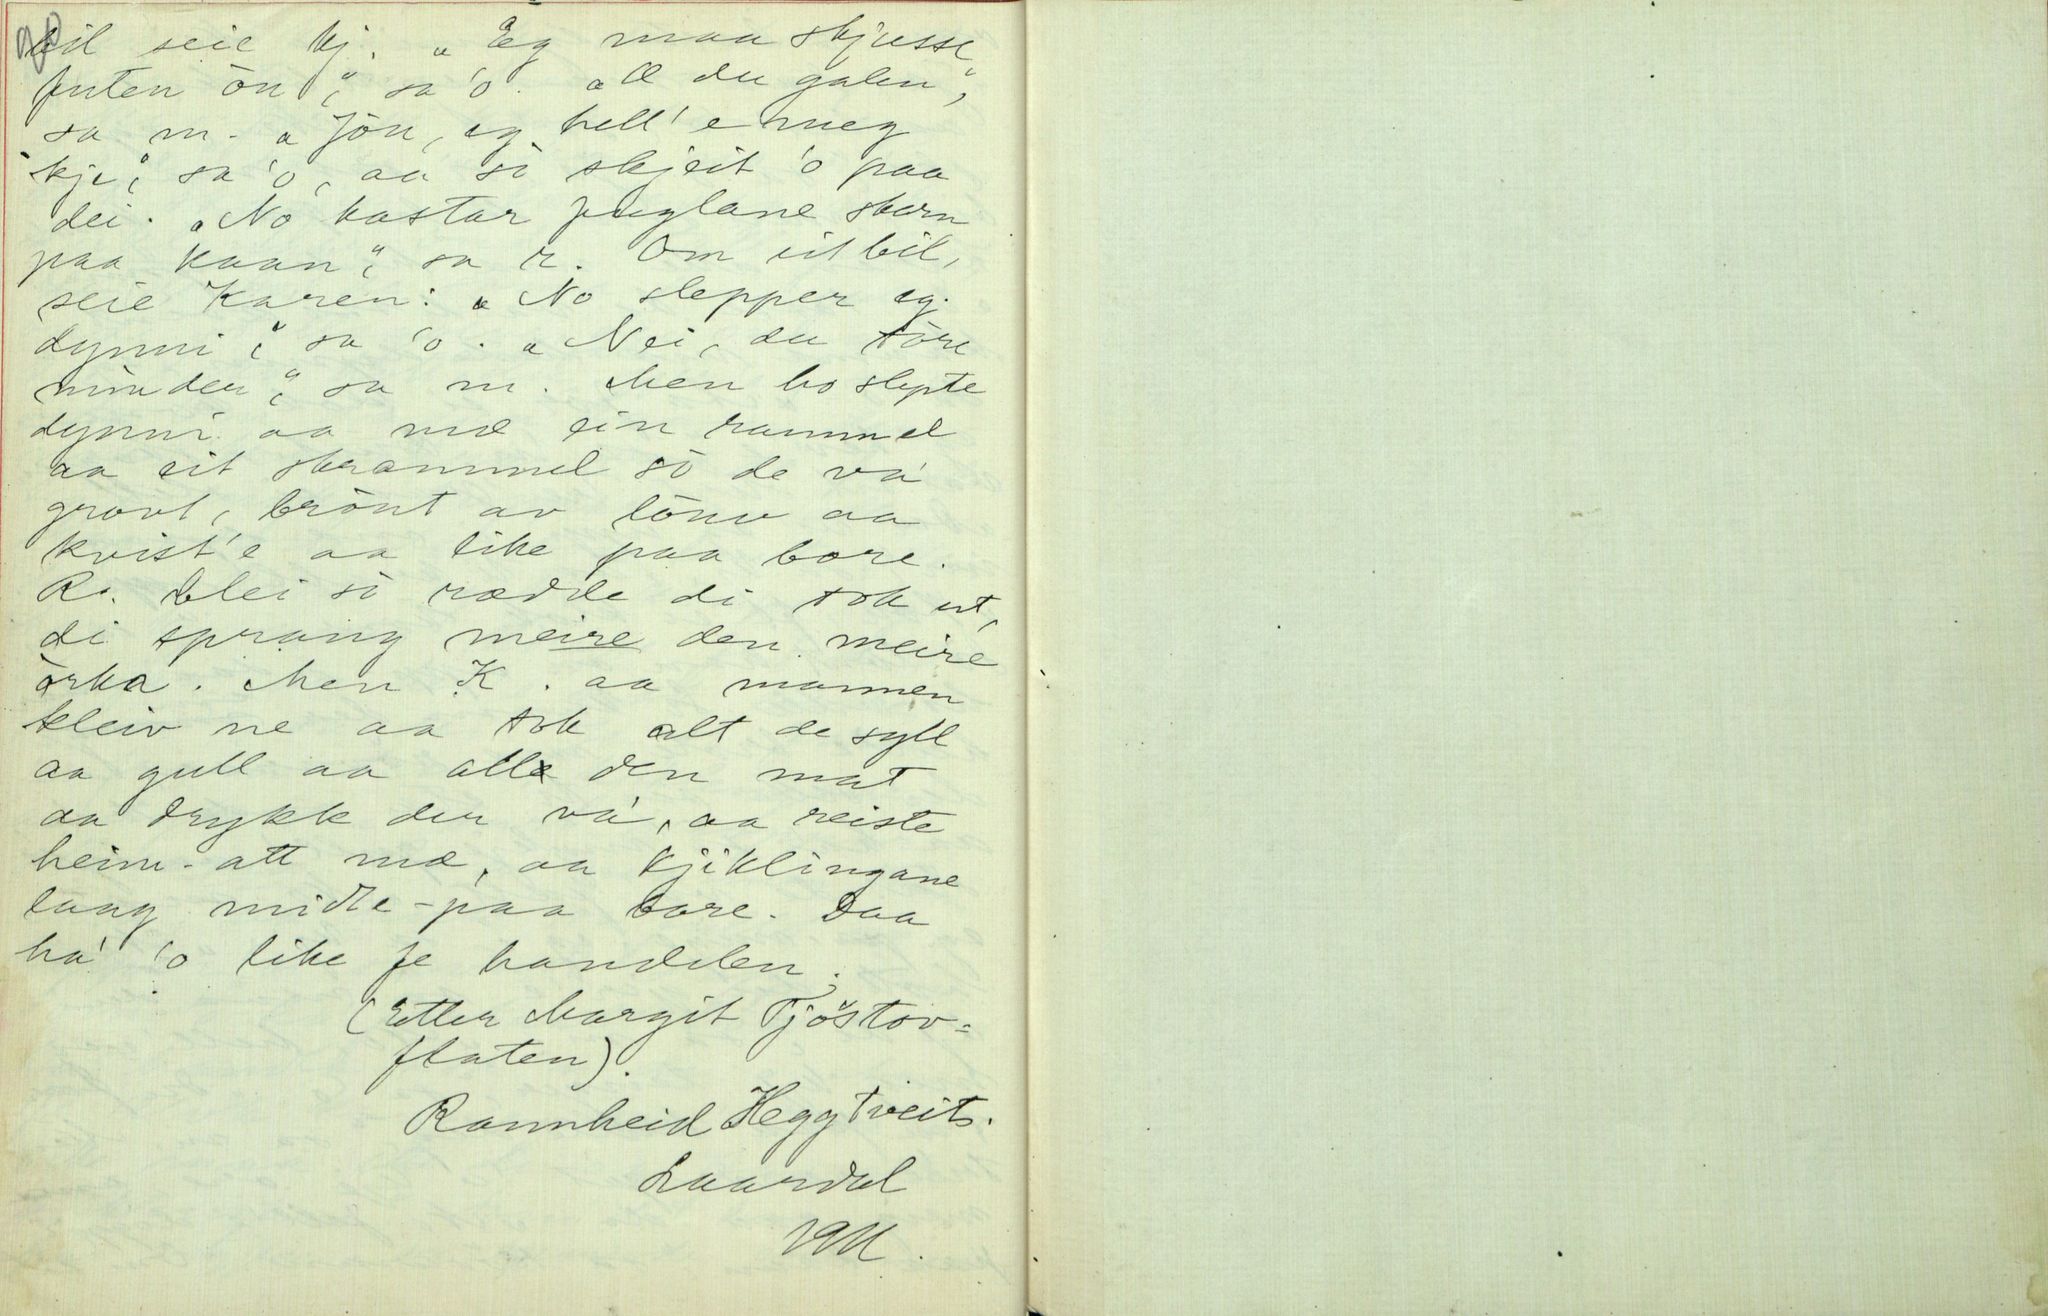 90
bil seie kj. „Eg maa skjusse
futen ôn“, sa 'o. „Æ du galen“,
sa m. „Jôu, eg hell'e meg
'kje“, sa 'o, aa sò skjeit 'o paa
dei. „No kastar fuglane skarn
paa kaan“, sa r. Om eit bil,
seie Karen: „No slepper eg
dynni“, sa 'o. „Nei, du tôre
minder“, sa m. Men ho slepte
dynni aa mæ ein rammel
aa eit skrammel sò de va'
grovt, brônt av lôuv aa
kvist'e aa like paa bore.
Rø. blei sò rædde di tok ut,
di sprang meire den meire
òrka. Men K. aa mannen
kleiv ne aa tok alt de syll
aa gull aa all den mat
aa drykk der va', aa reiste
heim-att mæ, aa kjiklingane
laag midt-paa bore. Daa
ha' 'o like fe handelen.
(Etter Margit Tjöstov-
flaten).
Rannheid Heggtveit.
Laardal
1911.